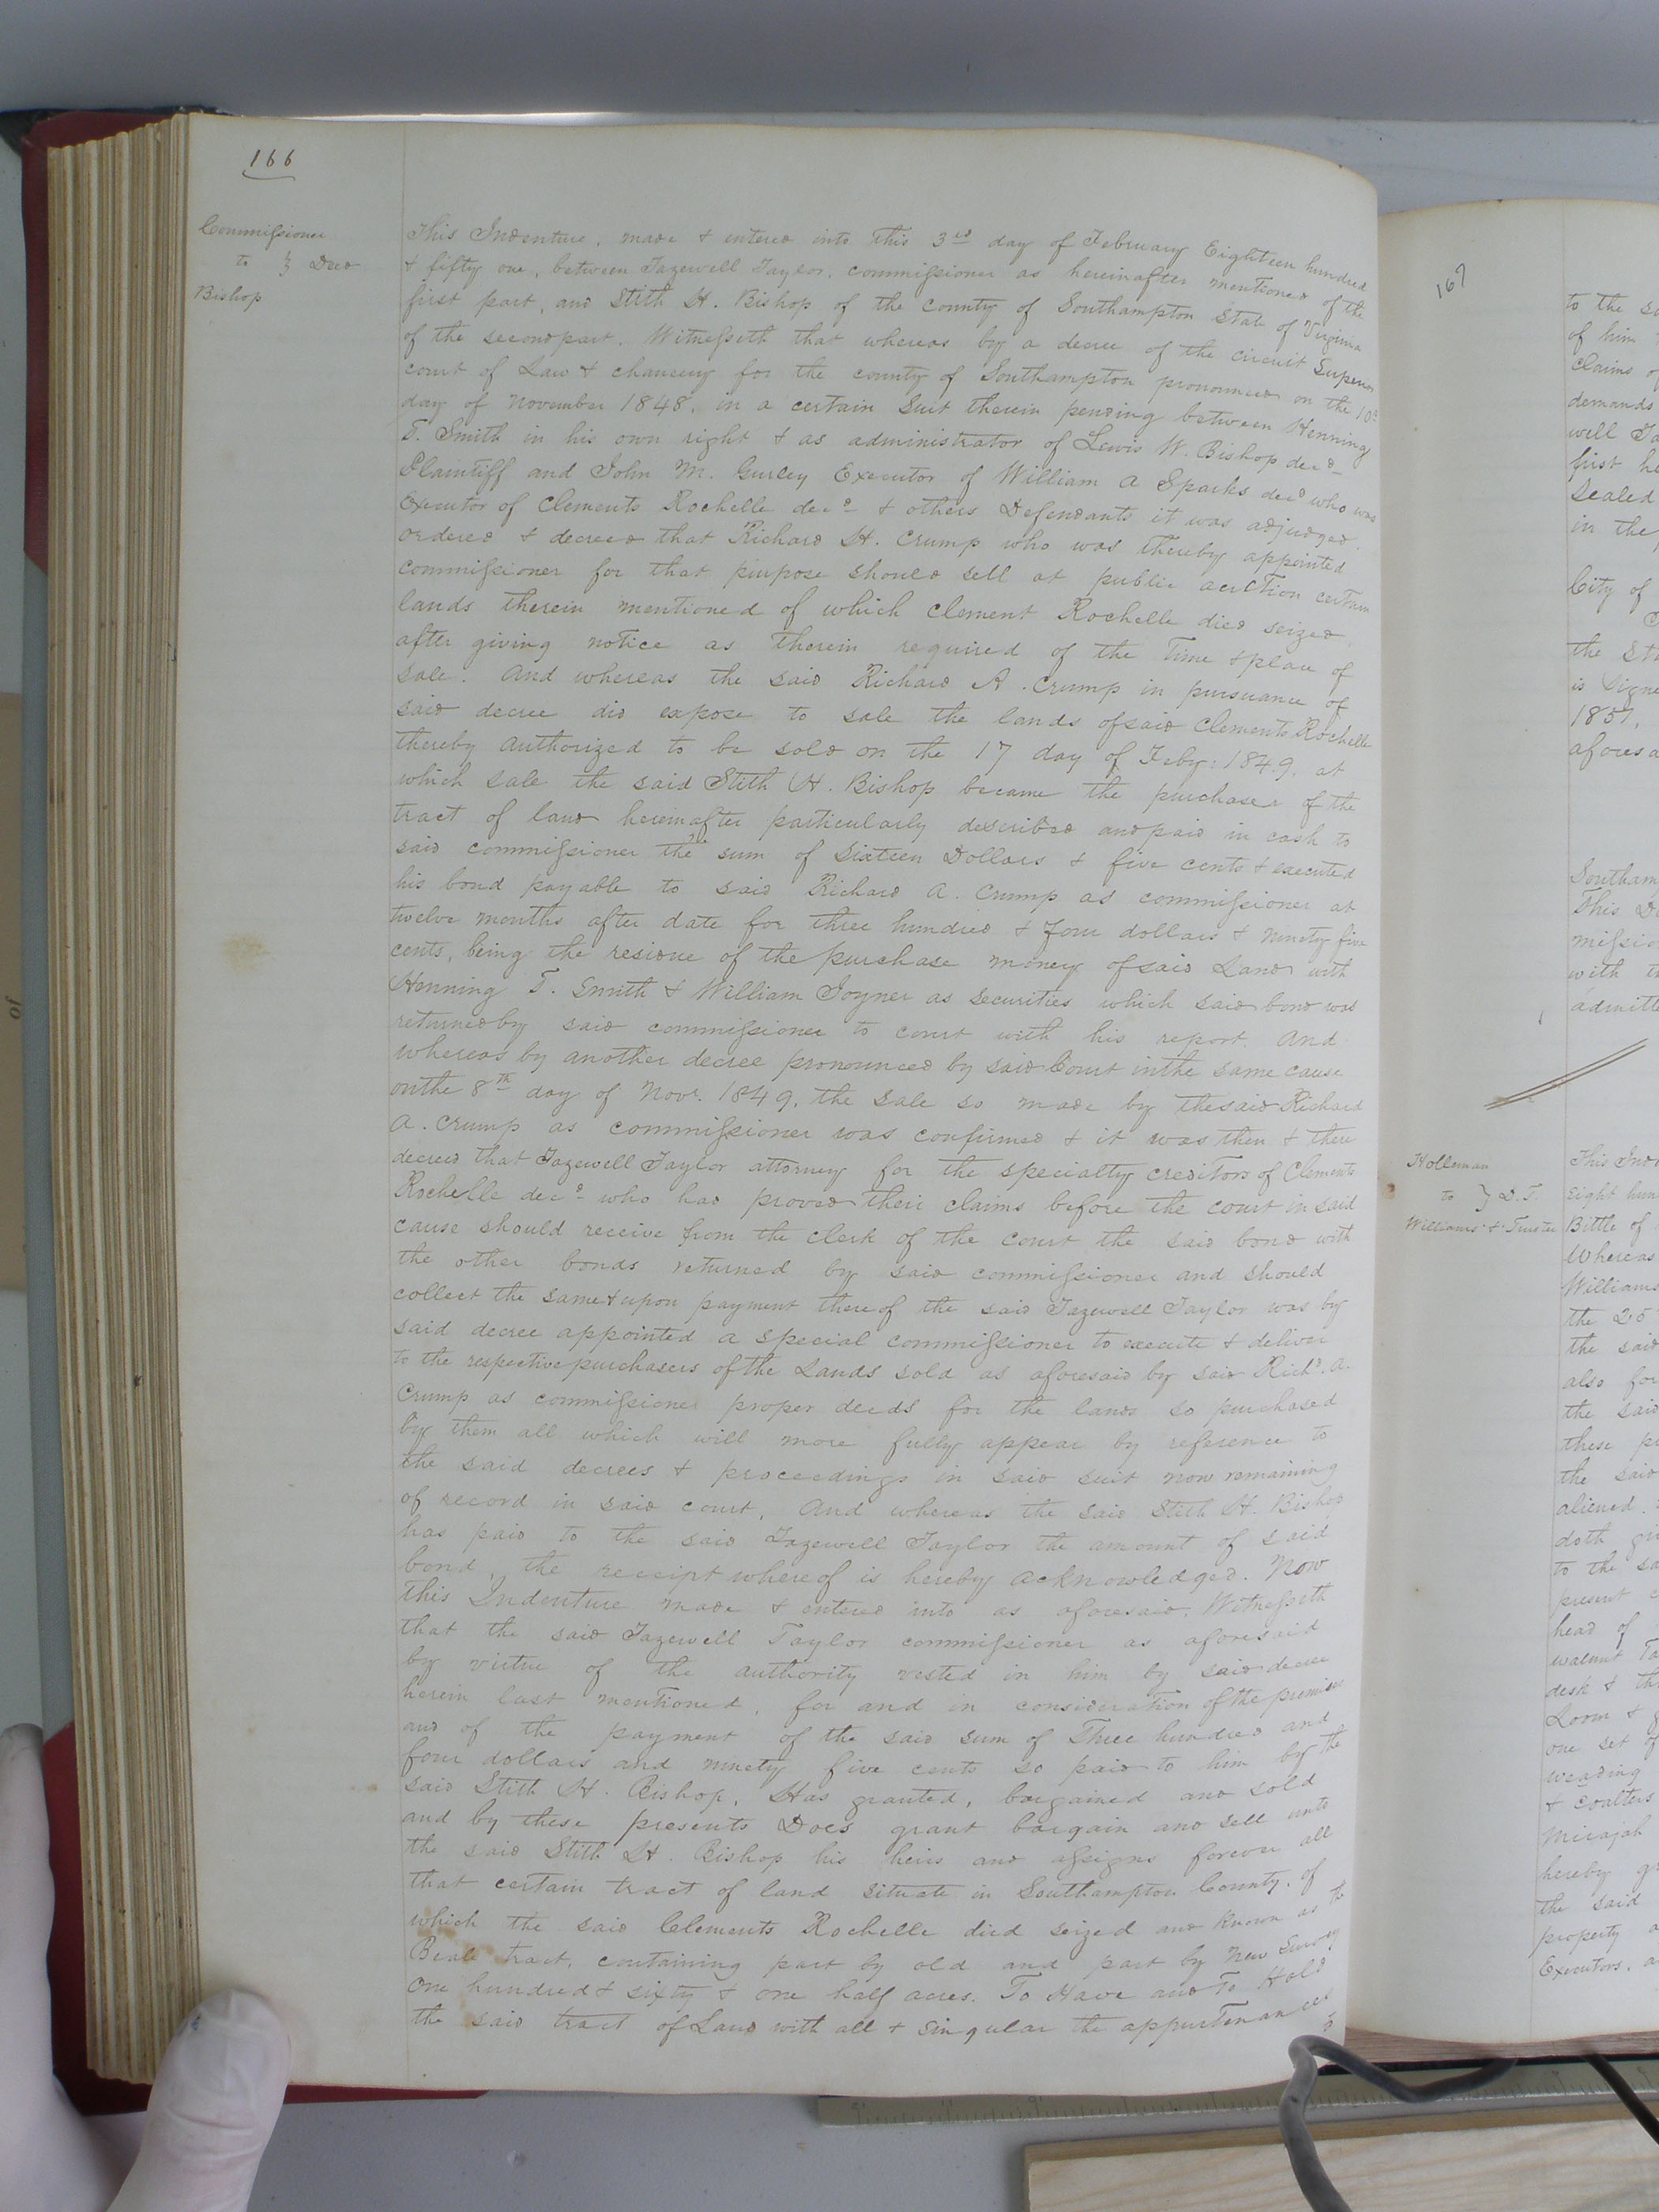 166
Commissioner
to } Deed
Bishop
This Indenture, made & entered into this 3rd day of February Eighteen hundred
& fifty one, between Tazewell Taylor, commissioner as hereinafter mentioned of the
first part, and Stith H. Bishop of the county of Southampton State of Virginia
of the second part. Witnesseth that whereas by a decree of the circuit Superior
court of Law & chancery for the county of Southampton pronounced on the 10th
day of November 1848, in a certain Suit therein pending between Henning
T. Smith in his own right & as administrator of Lewis W. Bishop decd
Plaintiff and John M. Gurley Executor of William A Sparks decd who was
Executor of Clements Rochelle decd & others Defendants it was adjudged
ordered & decreed that Richard H. Crump who was thereby appointed
commissioner for that purpose should sell at public auction certain
lands therein mentioned of which Clement Rochelle died seized
after giving notice as therein required of the Time & place of
sale. And whereas the said Richard A. Crump in pursuance of
said decree did expose to sale the lands of said Clements Rochelle
thereby authorized to be sold on the 17 day of Feby: 1849, at
which sale the said Stith H. Bishop became the purchaser of the
tract of land hereinafter particularly described and paid in cash to
said commissioner the sum of Sixteen Dollars & five cents & executed
his bond payable to said Richard A. Crump as commissioner at
twelve months after date for three hundred & four dollars & ninety five
cents, being the residue of the purchase money of said Land with
Henning T. Smith & William Joyner as securities which said bond was
returned by said commissioner to court with his report. And
whereas by another decree pronounced by said Court in the same cause
on the 8th day of Novr. 1849, the sale so made by the said Richard
A. Crump as commissioner was confirmed & it was then & there
decreed that Tazewell Taylor attorney for the specialty creditors of Clements
Rochelle decd who had proved their claims before the court in said
cause should receive from the clerk of the court the said bond with
the other bonds returned by said commissioner and should
collect the same & upon payment thereof the said Tazewell Taylor was by
said decree appointed a special commissioner to execute & deliver
to the respective purchasers of the Lands sold as aforesaid by said Richd. A.
Crump as commissioner proper deeds for the lands so purchased
by them all which will more fully appear by reference to
the said decrees & proceedings in said suit now remaining
of record in said court. And whereas the said Stith H. Bishop
has paid to the said Tazewell Taylor the amount of said
bond, the receipt whereof is hereby acknowledged. Now
this Indenture made & entered into as aforesaid, Witnesseth
that the said Tazewell Taylor commissioner as aforesaid
by virtue of the authority vested in him by said decree
herein last mentioned, for and in consideration of the premises
and of the payment of the said sum of Three hundred and
four dollars and ninety five cents so paid to him by the
said Stith H. Bishop, Has granted, bargained and sold
and by these presents Does grant bargain and sell unto
the said Stith H. Bishop his heirs and assigns forever all
that certain tract of land situate in Southampton County, of
which the said Clements Rochelle died seized and known as the
Beale tract, containing part by old and part by New Survey
One hundred & sixty & one half acres. To Have and To Hold
the said tract of Land with all & singular the appurtenances
167
to the
of him
claims of
demands
will
first
Sealed
in the
City of
the
is
1851,
Southam
This
with
Holleman
to } D.T.
Williams & Trustee
This
Eight hun
Bittle of
Whereas
Williams
the 25
the said
also for
the said
these
the said
aliened
doth
to the
present
head of
walnut
desk &
Loom &
one set of
&
Micajah
hereby
the said
property
Executors,